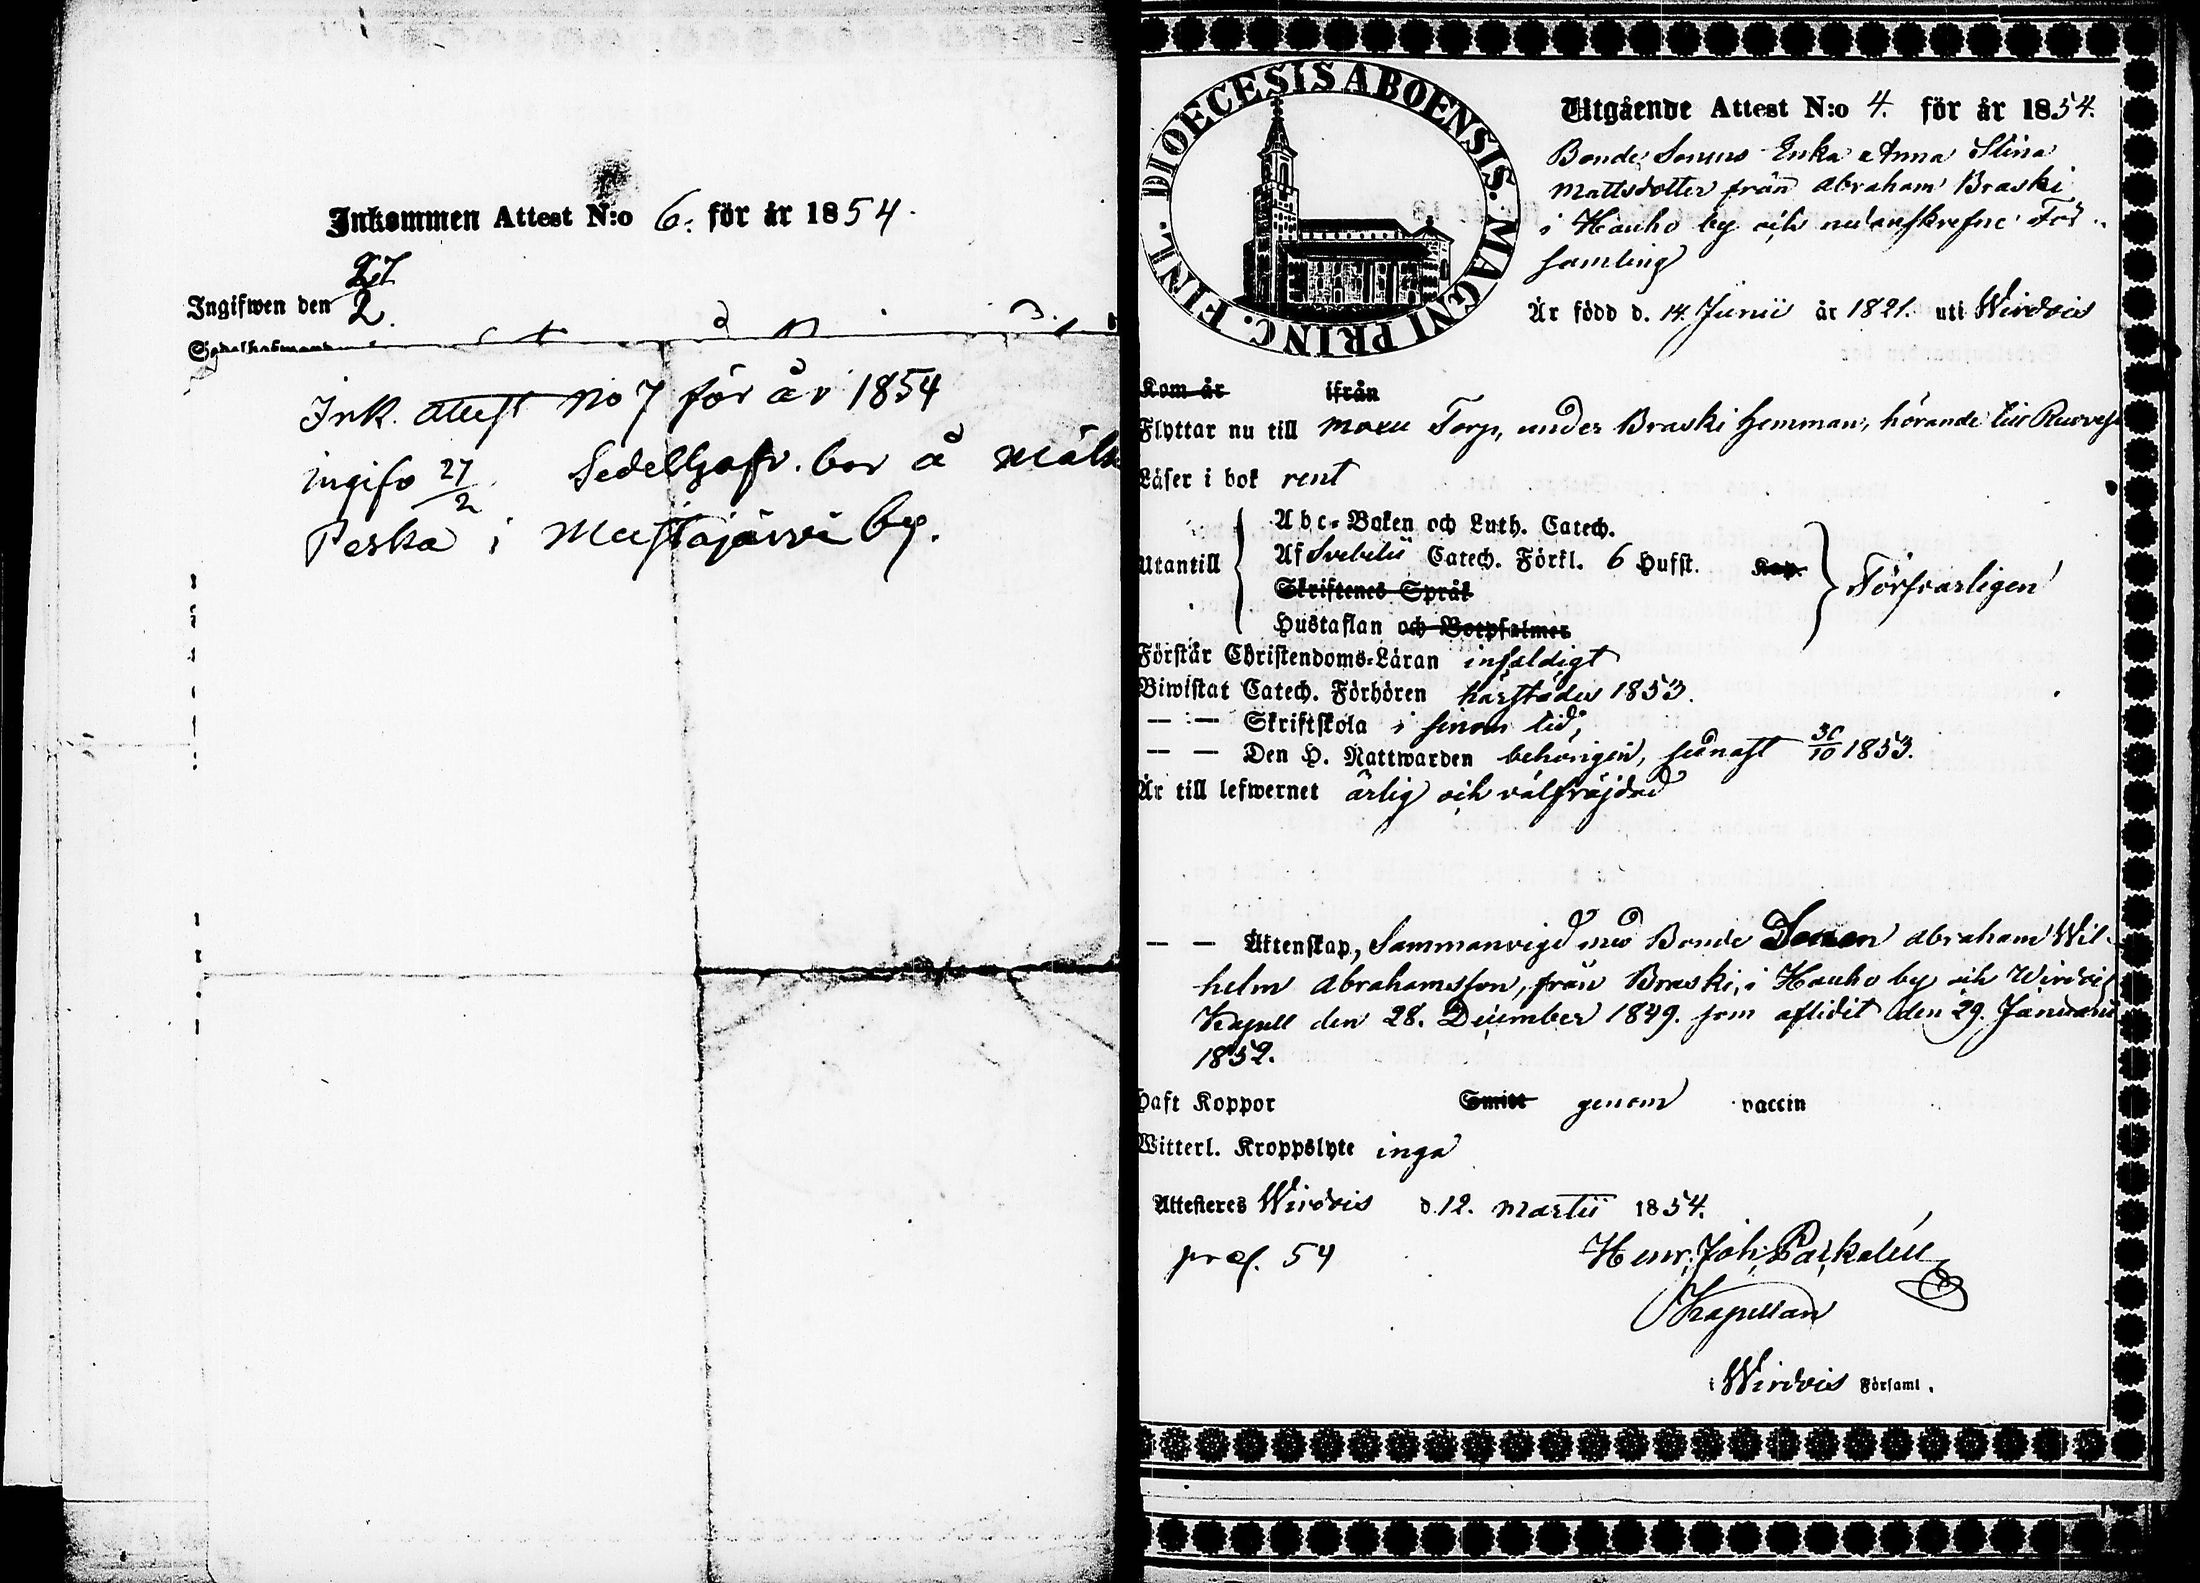 Inkommen Attest N:o 6. för år 1854.
Ingifwen den 27/2.
Ink. attest No 7 för år 1854
ingifv 27/2. Sedelhafv. bor å
Peska i Mustajärvi by.
DIOECESIS ABOENSIS. MAGNI PRINC. FINL.
Utgående Attest N:o 4. för år 1854.
Bonde Sonens Enka Anna Stina
Mattsdotter från Abraham Braski
i Hauho by och nedanskrefne För-
samling
Är född d. 14. Junii år 1821. uti Wirdois
Kom år ifrån
Flyttar nu till Torp, under Braski hemman, hörande till Ruovesi
Läser i bok rent
Utantill
Abc-Boken och Luth. Catech.
Af Svebelii Catech. Förkl. 6 Hufst. Kap.
Skriftenes Språk
Hustaflan och Botpsalmer
Försvarligen
Förstår Christendoms-Läran enfaldigt
Biwistat Catech. Förhören härstädes 1853.
— — Skriftskola i sinom tid,
— — Den H. Nattwarden behörigen, senast 30/10 1853.
Är till lefwernet ärlig och välfräjdad
— — Äktenskap, Sammanvigd med Bonde Sonen Abraham Wil-
helm Abrahamsson, från Braski, i Hauho by och Wirdois
Kapell den 28. December 1849. som aflidit den 29. Januarii
1852.
Haft Koppor Smitt genom vaccin
Witterl. Kroppslyte inga
Attesteres Wirdois d. 12. Martii 1854.
præs. 54
Henr. Joh.
Kapellan
i Wirdois Församl.